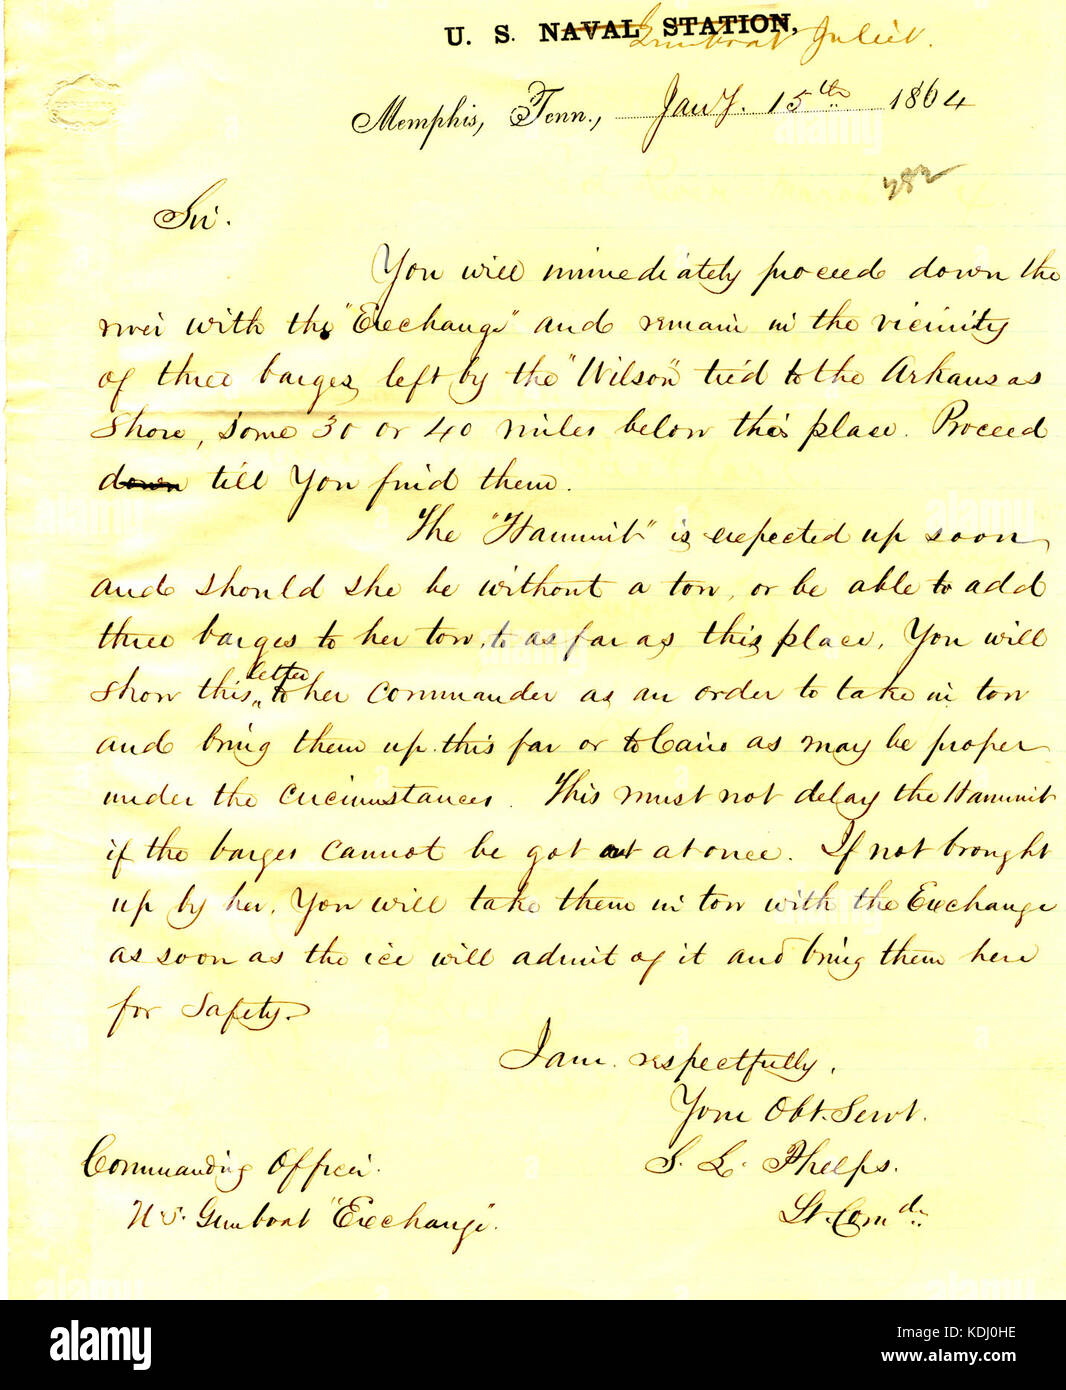 U. S. NAVAL STATION, Gunboat Juliet.
Memphis, Tenn., Jany. 15th 1864
282
Sir.
You will immediately proceed down the
river with the "Exchange" and remain in the vicinity
of three barges left by the "Wilson" tied to the Arkansas
Shore, some 30 or 40 miles below this place. Proceed
down till You find them.
The "Hammit" is expected up soon
and should she be without a tow, or be able to add
three barges to her tow, to as far as this place, You will
letter
show this to her commander as an order to take in tow
and bring them up this far or to Cairo as may be proper
under the circumstances. This must not delay the Hammit
if the barges cannot be got out at once. If not brought
up by her, You will take them in tow with the Exchange
as soon as the ice will admit of it and bring them here
for Safety.
I am respectfully,
Your Obt. Servt.
S. L. Phelps.
Lt. Comdr.
Commanding Officer.
U.S. Gunboat "Exchange".
alamy
Image ID: KDJ0HE
www.alamy.com